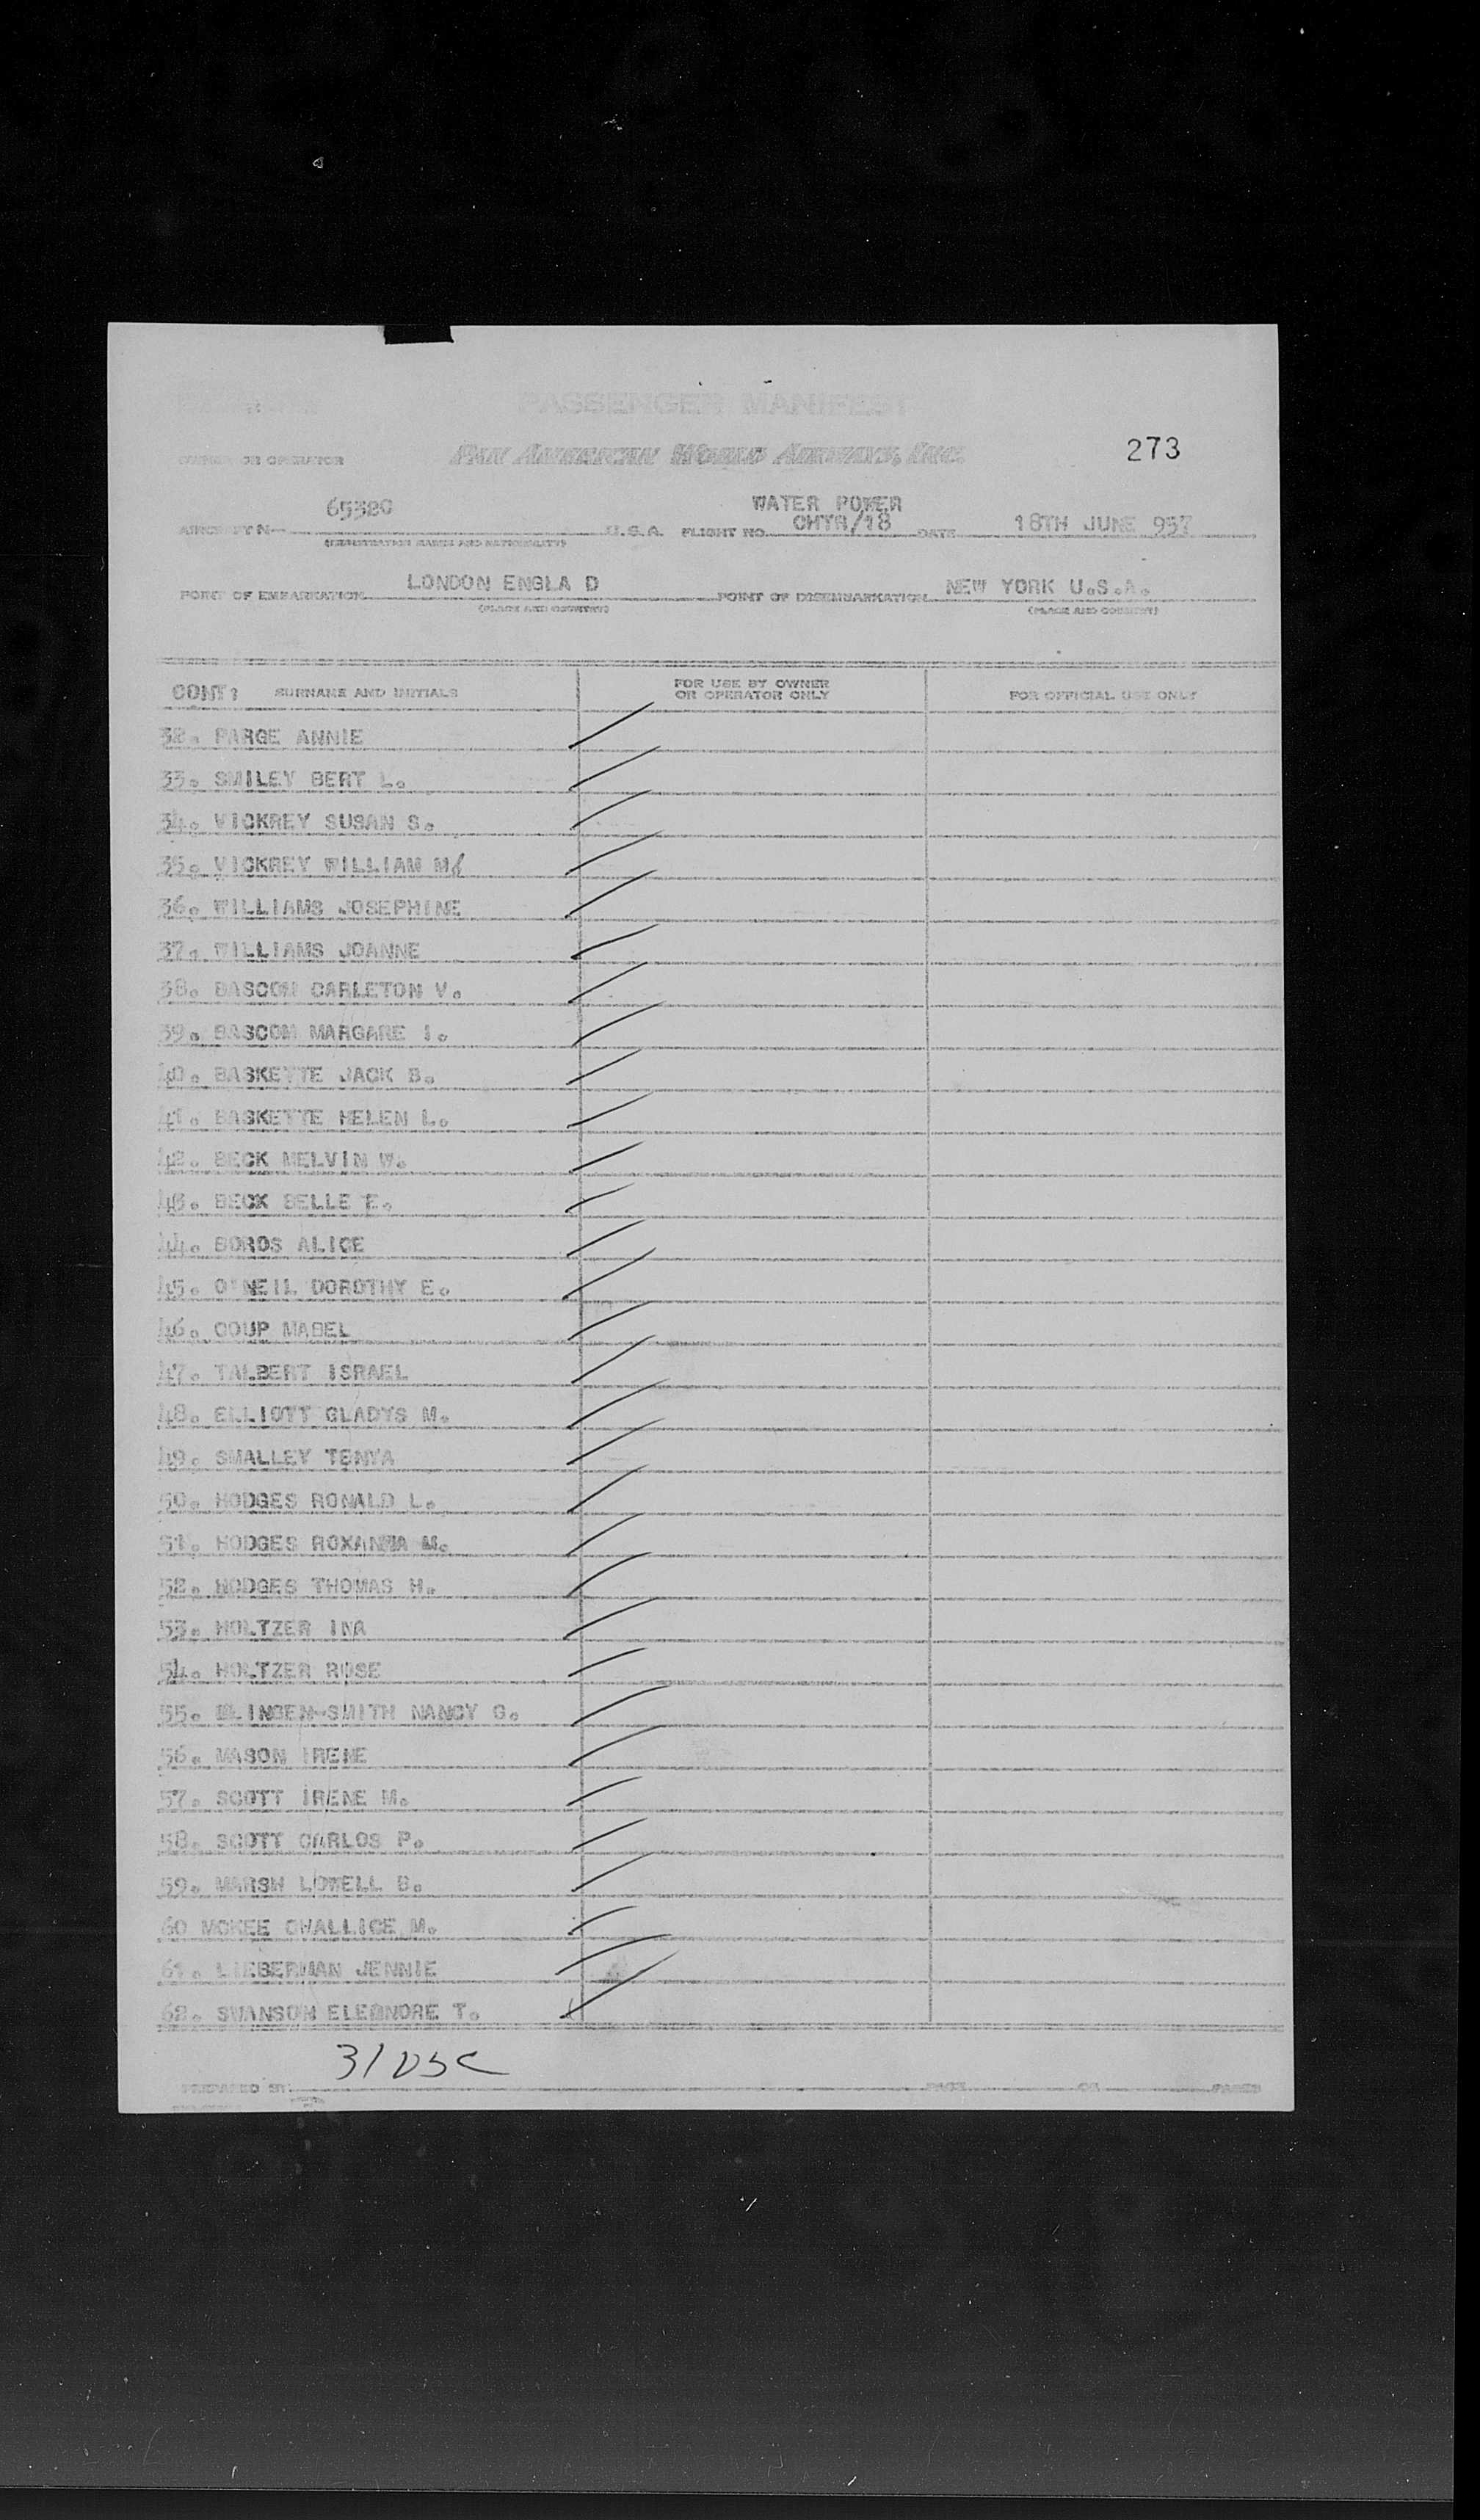 PASSENGER MANIFEST
OWNER OR OPERATOR PAN AMERICAN WORLD AIRWAYS, INC. 273
65320 WATER POWER
AIRCRAFT N— U.S.A. FLIGHT NO. CHTR/18 DATE 18TH JUNE 957
(REGISTRATION MARKS AND NATIONALITY)
POINT OF EMBARKATION LONDON ENGLA D POINT OF DISEMBARKATION NEW YORK U.S.A.
(PLACE AND COUNTRY) (PLACE AND COUNTRY)
CONT: SURNAME AND INITIALS FOR USE BY OWNER OR OPERATOR ONLY FOR OFFICIAL USE ONLY
32. PARGE ANNIE
33. SMILEY BERT L.
34. VICKREY SUSAN S.
35. VICKREY WILLIAM M
36. WILLIAMS JOSEPHINE
37. WILLIAMS JOANNE
38. BASCOM CARLETON V.
39. BASCOM MARGARE I.
40. BASKETTE JACK B.
41. BASKETTE HELEN L.
42. BECK MELVIN W.
43. BECK BELLE E.
44. BOROS ALICE
45. O'NEIL DOROTHY E.
46. COUP MABEL
47. TALBERT ISRAEL
48. ELLIOTT GLADYS M.
49. SMALLEY TENYA
50. HODGES RONALD L.
51. HODGES ROXANNA M.
52. HODGES THOMAS H.
53. HOLTZER INA
54. HOLTZER ROSE
55. NANCY G.
56. MASON IRENE
57. SCOTT IRENE M.
58. SCOTT CARLOS P.
59. MARSH LOWELL B.
60 MCKEE CHALLICE M.
61. LIEBERMAN JENNIE
62. SWANSON ELEONORE T.
31 USC
PREPARED BY PAGE OF PAGES